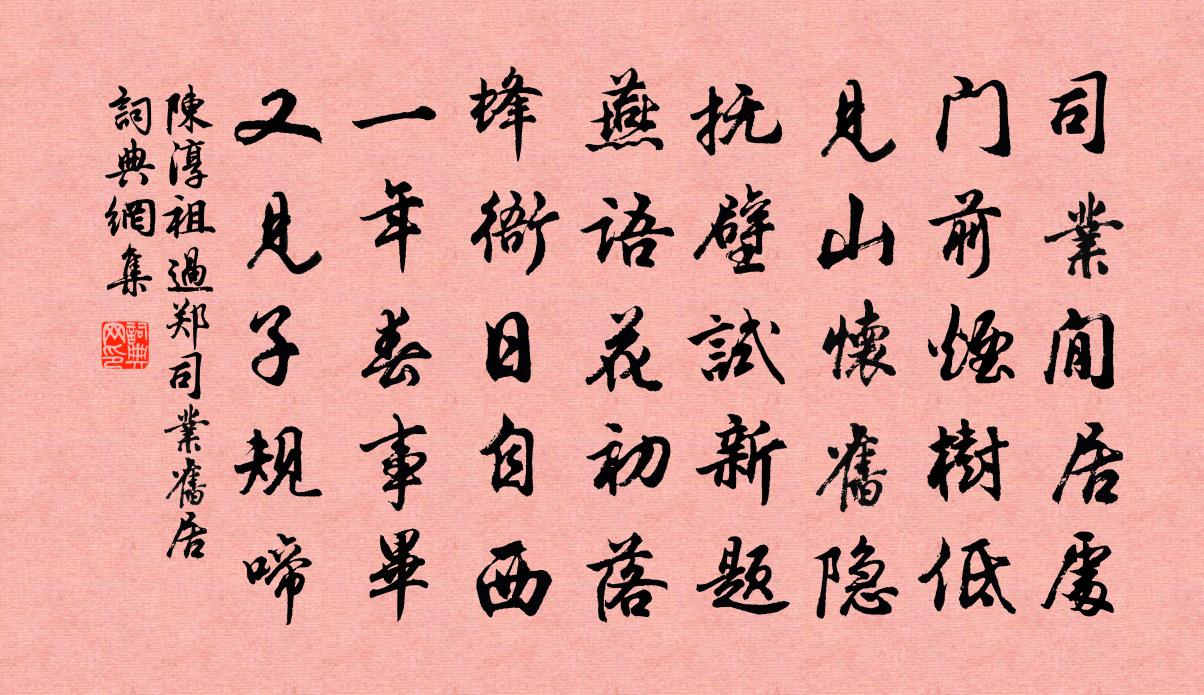 司業閒居處
门前煙樹低
見山懷舊隐
抚壁試新題
燕語花初落
蜂衙日自西
一年春事畢
又見子規啼
陳淳祖過郑司業舊居
詞典網集
詞典网印